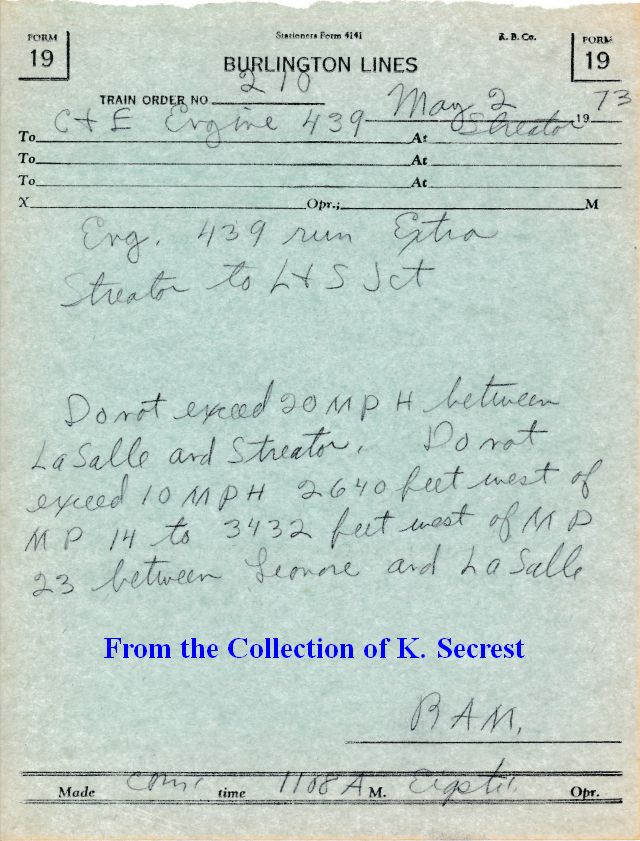 FORM 19 Stationers Form 4141 R. B. Co. FORM 19
BURLINGTON LINES
TRAIN ORDER NO. 210 May 2 19 73
To C + E Engine 439 At Streator
To At
To At
X Opr.; M
Eng. 439 run Extra
Streator to L + S Jct
Do not exceed 20 MPH between
LaSalle and Streator. Do not
exceed 10 MPH 2640 feet west of
MP 14 to 3432 feet west of MP
23 between Leonore and LaSalle
From the Collection of K. Secrest
RAM.
Made com time 1108 A M. Opr.